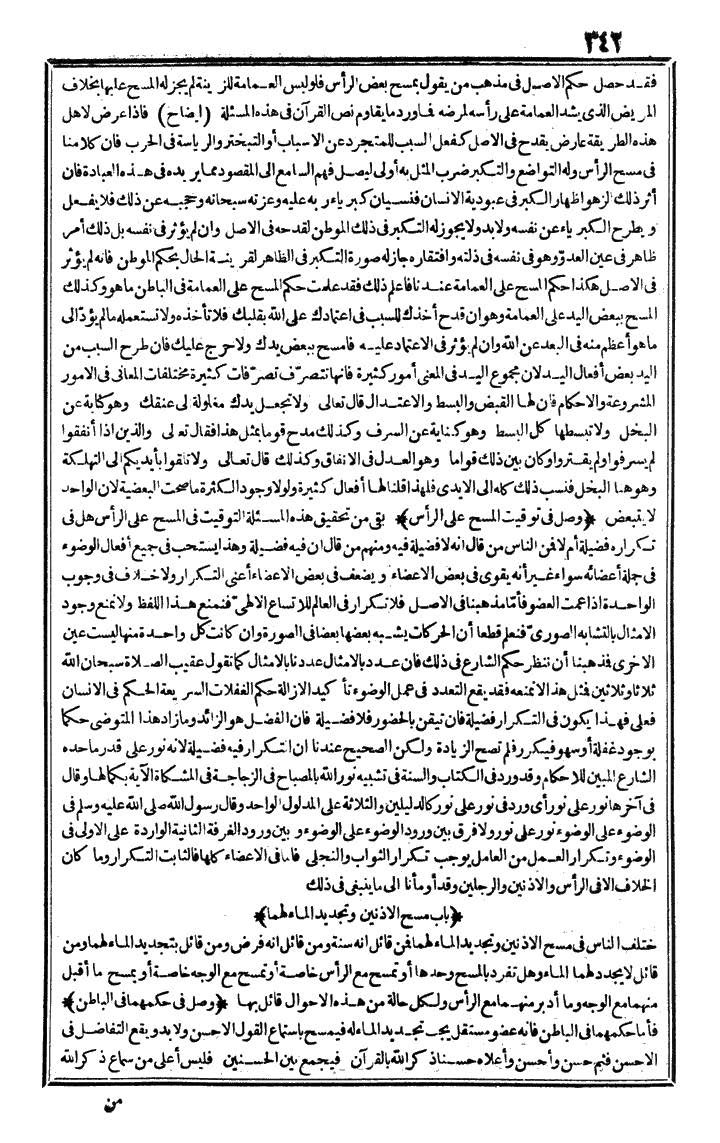 ٣٤٢
فقد حصل حكم الاصل فى مذهب من يقول بمسح بعض الرأس فلو لبس العمامة للزينة لم يجز له المسح عليها بخلاف
المريض الذى يشد العمامة على رأسه لمرضه فما ورد ما يقاوم نص القرآن فى هذه المسئلة (ايضاح) فاذا عرض لاهل
هذه الطريقة عارض يقدح فى الاصل كفعل السبب للمتجرد عن الاسباب أو التبختر والرياسة فى الحرب فان كلامنا
فى مسح الرأس وله التواضع والتكبر ضرب المثل به أولى ليصل فهم السامع الى المقصود مما يريده فى هذه العبادة فان
أثر ذلك الزهو اظهار الكبر فى عبودية الانسان فنسيان كبرياء ربه عليه وعزته سبحانه وحجبه عن ذلك فلا يفعل
ويطرح الكبرياء عن نفسه ولا بد ولا يجوز له التكبر فى ذلك الموطن لقدحه فى الاصل وان لم يؤثر فى نفسه بل ذلك أمر
ظاهر فى عين العدوّ وهو فى نفسه فى ذلته وافتقاره جاز له صورة التكبر فى الظاهر لقرينة الحال بحكم الموطن فانه لم يؤثر
فى الاصل هكذا حكم المسح على العمامة عندنا فاعلم ذلك فقد علمت حكم المسح على العمامة فى الباطن ما هو وكذلك
المسح ببعض اليد على العمامة وهو ان قدح أخذك للسبب فى اعتمادك على الله بقلبك فلا تأخذه ولا تستعمله ما لم يؤدّ الى
ما هو أعظم منه فى البعد عن الله وان لم يؤثر فى الاعتماد عليه فامسح ببعض يدك ولا حرج عليك فان طرح السبب من
اليد بعض أفعال اليد لان مجموع اليد فى المعنى أمور كثيرة فانها تتصرّف تصرّفات كثيرة مختلفات المعانى فى الامور
المشروعة والاحكام فان لها القبض والبسط والاعتدال قال تعالى ولا تجعل يدك مغلولة الى عنقك وهو كناية عن
البخل ولا تبسطها كل البسط وهو كناية عن السرف وكذلك مدح قوما بمثل هذا فقال تعالى والذين اذا أنفقوا
لم يسرفوا ولم يقتروا وكان بين ذلك قواما وهو العدل فى الانفاق وكذلك قال تعالى ولا تلقوا بأيديكم الى التهلكة
وهو هنا البخل فنسب ذلك كله الى الايدى فلهذا قلنا لها أفعال كثيرة ولولا وجود الكثرة ما صحت البعضية لان الواحد
لا يتبعض ﴿وصل فى توقيت المسح على الرأس﴾ بقى من تحقيق هذه المسئلة التوقيت فى المسح على الرأس هل فى
تكراره فضيلة أم لا فمن الناس من قال انه لا فضيلة فيه ومنهم من قال ان فيه فضيلة وهذا يستحب فى جميع أفعال الوضوء
فى جملة أعضائه سواء غير أنه يقوى فى بعض الاعضاء ويضعف فى بعض الاعضاء أعنى التكرار ولا خلاف فى وجوب
الواحدة اذا عمت العضو فأمّا مذهبنا فى الاصل فلا تكرار فى العالم للاتساع الالهىّ فنمنع هذا اللفظ ولا نمنع وجود
الامثال بالتشابه الصورىّ فنعلم قطعا أن الحركات يشبه بعضها بعضا فى الصورة وان كانت كل واحدة منها ليست عين
الاخرى فذهبنا أن ننظر حكم الشارع فى ذلك فان عدد بالامثال عددنا بالامثال كما نقول عقيب الصلاة سبحان الله
ثلاثا وثلاثين فمثل هذا لا نمنعه فقد يقع التعدد فى عمل الوضوء تأكيد الازالة حكم الغفلات السريعة الحكم فى الانسان
فعلى فهذا يكون فى التكرار فضيلة فان تيقن بالحضور فلا فضيلة فان الفضل هو الزائد وما زاد هذا المتوضى حكما
بوجود غفلة أو سهو فيكرر فلم تصح الزيادة ولكن الصحيح عندنا ان التكرار فيه فضيلة لانه نور على قدر ما حده
الشارع المبين للاحكام وقد ورد فى الكتاب والسنة فى تشبيه نور الله بالمصباح فى الزجاجة فى المشكاة الآية بكمالها وقال
فى آخرها نور على نور أى ورد فى نور على نور كالدليلين والثلاثة على المدلول الواحد وقال رسول الله صلى الله عليه وسلم فى
الوضوء على الوضوء نور على نور ولا فرق بين ورود الوضوء على الوضوء وبين ورود الغرفة الثانية الواردة على الاولى فى
الوضوء وتكرار العمل من العامل يوجب تكرار الثواب والتجلى فاما فى الاعضاء كلها فالثابت التكرار وما كان
الخلاف الا فى الرأس والاذنين والرجلين وقد أومأنا الى ما ينبغى فى ذلك
﴿باب مسح الاذنين وتجديد الماء لهما﴾
ختلف الناس فى مسح الاذنين وتجديد الماء لهما فمن قائل انه سنة ومن قائل انه فرض ومن قائل بتجديد الماء لهما ومن
قائل لا يجدد لهما الماء وهل تفرد بالمسح وحدها أو تمسح مع الرأس خاصة أو تمسح مع الوجه خاصة أو يمسح ما أقبل
منهما مع الوجه وما أدبر منهما مع الرأس ولكل حالة من هذه الاحوال قائل بها ﴿وصل فى حكمهما فى الباطن﴾
فأما حكمهما فى الباطن فانه عضو مستقل يجب تجديد الماء له فيمسح باستماع القول الاحسن ولا بد ويقع التفاضل فى
الاحسن فثم حسن وأحسن وأعلاه حسنا ذكر الله بالقرآن فيجمع بين الحسنين فليس أعلى من سماع ذكر الله
من